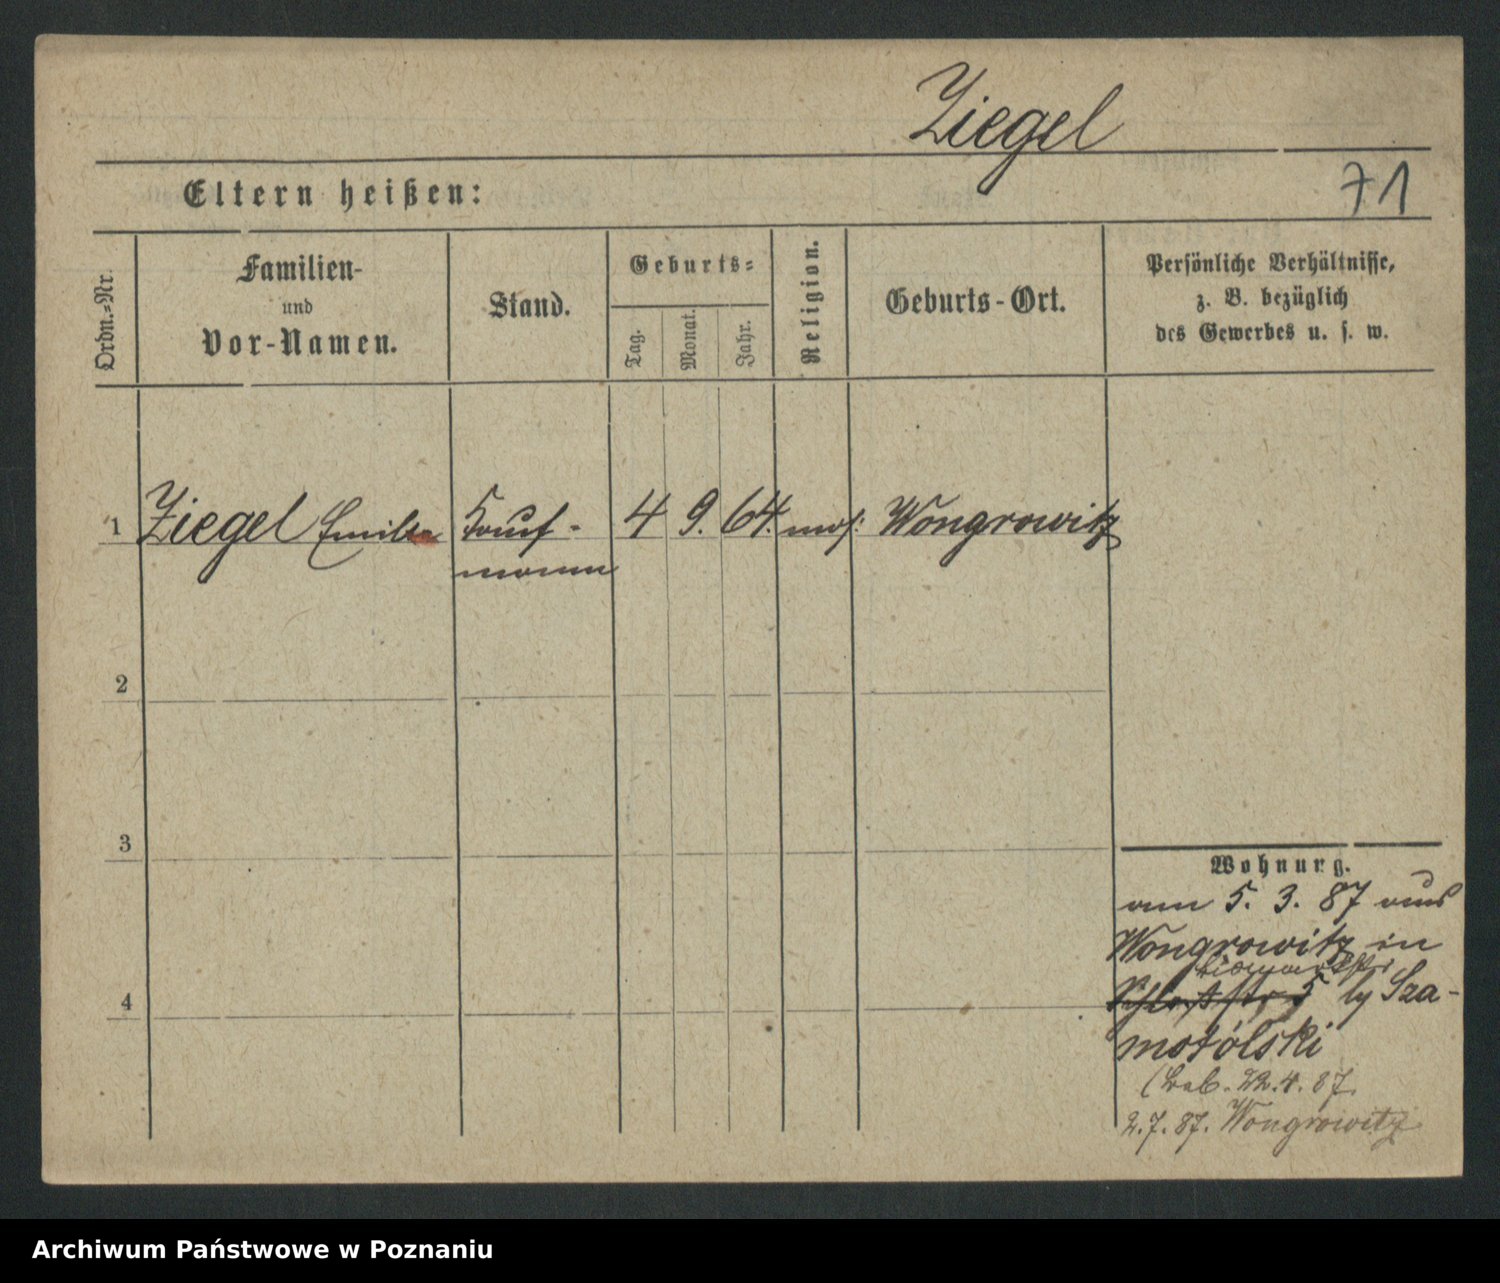 Ziegel
Eltern heißen:
71
Ordn.-Nr.
Familien-
und
Vor-Namen.
Stand.
Geburts-
Tag.
Monat.
Jahr.
Religion.
Geburts-Ort.
Persönliche Verhältnisse,
z. B. bezüglich
des Gewerbes u. s. w.
1 Ziegel Kauf- 4 9. 64. mos: Wongrowitz
mann
2
3
4
Wohnung.
am 5. 3. 87 aus
Wongrowitz in
Bismarckstr
5 by Sza-
motólski
22.4.87.
2.7.87. Wongrowitz
Archiwum Państwowe w Poznaniu